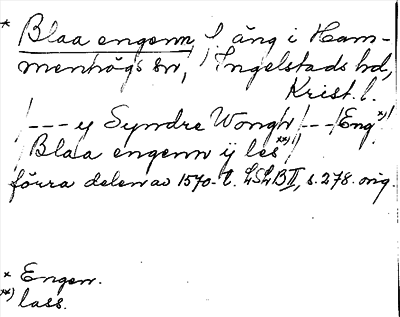 * Blaa engenn, / äng i Ham-
menhögs sn, / Ingelstads hd,
Krist. l.
/--- y Syndre Wongh /---/ Eng *)/
/ Blaa engenn ÿ les **)/
förra delen av 1570-t. LSLB II, s. 278. orig.
* Engen.
**) lass.